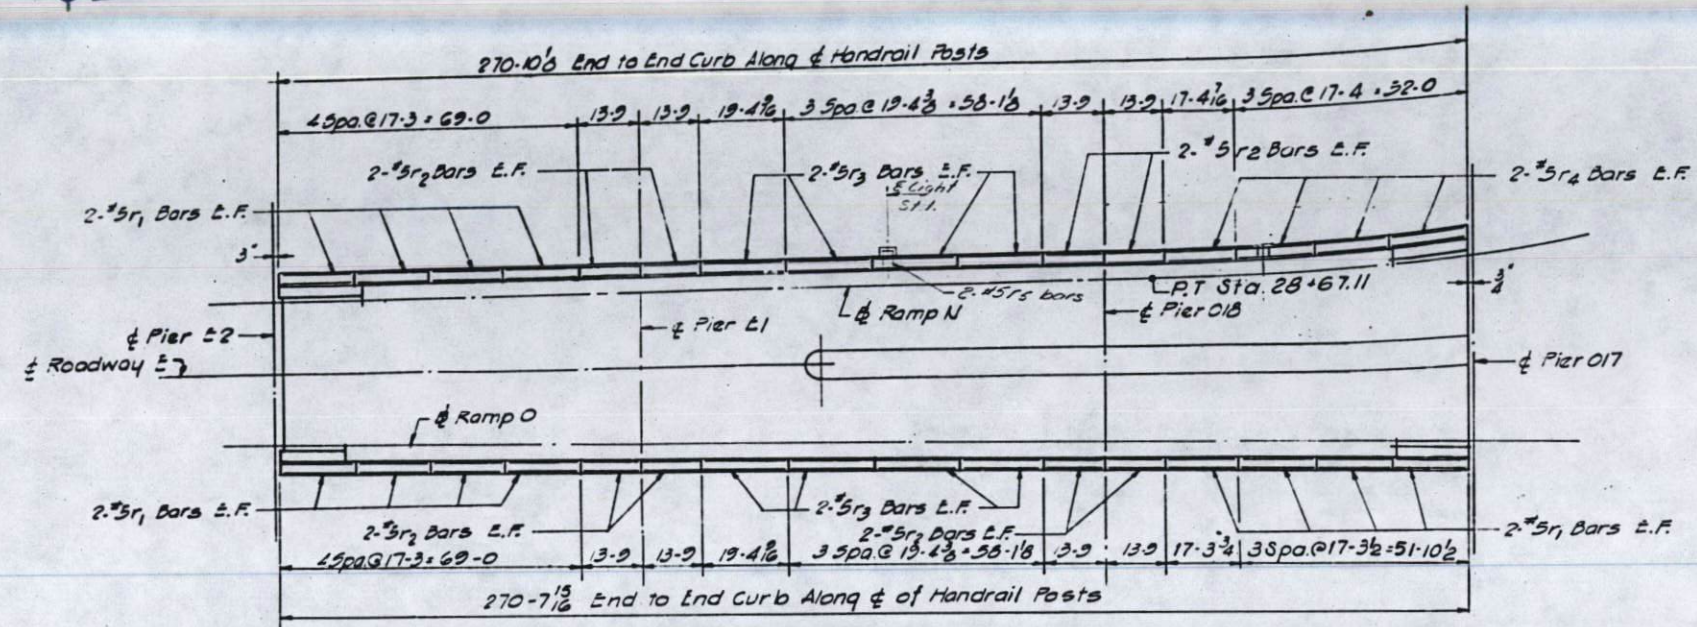 270-10⅛ End to End Curb Along ℄ Handrail Posts
4 Spa. @ 17-3 = 69-0
13-9
13-9
19-4 9/16
3 Spa. @ 19-4⅜ = 58-1⅛
13-9
13-9
17-4 7/16
3 Spa. @ 17-4 = 52-0
2-#5r2 Bars E.F.
2-#5r3 Bars E.F.
2-#5r2 Bars E.F.
2-#5r4 Bars E.F.
2-#5r1 Bars E.F.
℄ Light
Std.
3"
2-#5r5 bars
P.T Sta. 28+67.11
¾"
℄ Ramp N
℄ Pier E1
℄ Pier 018
℄ Pier E2
℄ Roadway E
℄ Pier 017
℄ Ramp O
2-#5r1 Bars E.F.
2-#5r2 Bars E.F.
2-#5r3 Bars E.F.
2-#5r2 Bars E.F.
2-#5r1 Bars E.F.
4 Spa. @ 17-3 = 69-0
13-9
13-9
19-4 9/16
3 Spa. @ 19-4⅜ = 58-1⅛
13-9
13-9
17-3¾
3 Spa. @ 17-3½ = 51-10½
270-7 15/16 End to End Curb Along ℄ of Handrail Posts